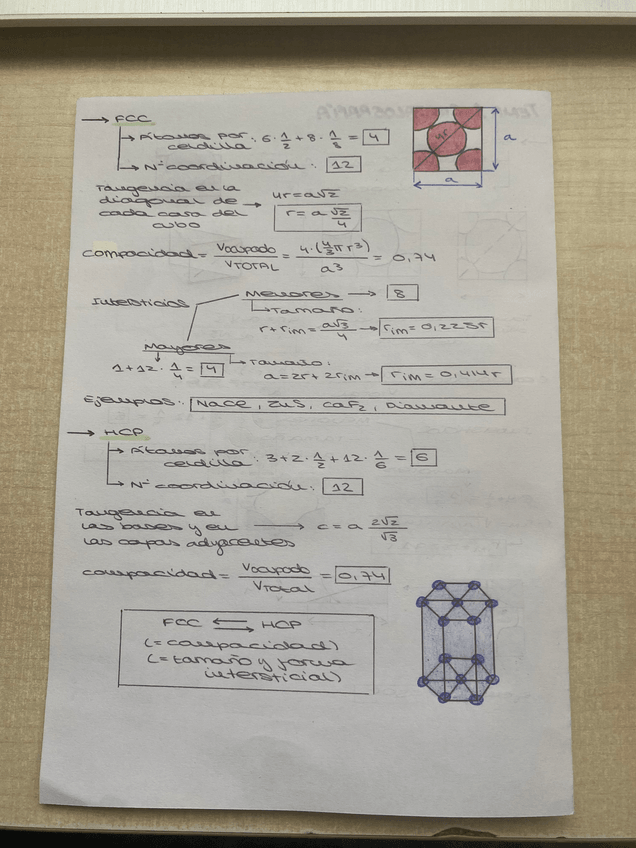 → FCC
→ Átomos por celdilla: 6·1/2 + 8·1/8 = 4
→ Nº coordinación: 12
4r
a
a
Tangencia en la
diagonal de
cada cara del
cubo
→ 4r = a√2
r = a √2/4
Compacidad = Vocupado/VTOTAL = 4·(4/3 π r³)/a³ = 0,74
Intersticios
Menores → 8
→ Tamaño:
r + rim = a√3/4 → rim = 0,225r
Mayores
1 + 12·1/4 = 4
→ Tamaño:
a = 2r + 2rim → rim = 0,414r
Ejemplos: NaCl, ZnS, CaF2, Diamante
→ HCP
→ Átomos por celdilla: 3 + 2·1/2 + 12·1/6 = 6
→ Nº coordinación: 12
Tangencia en
las bases y en
las capas adyacentes
→ c = a 2√2/√3
Compacidad = Vocupado/VTotal = 0,74
FCC ⇄ HCP
(= compacidad)
(= tamaño y forma
intersticial)